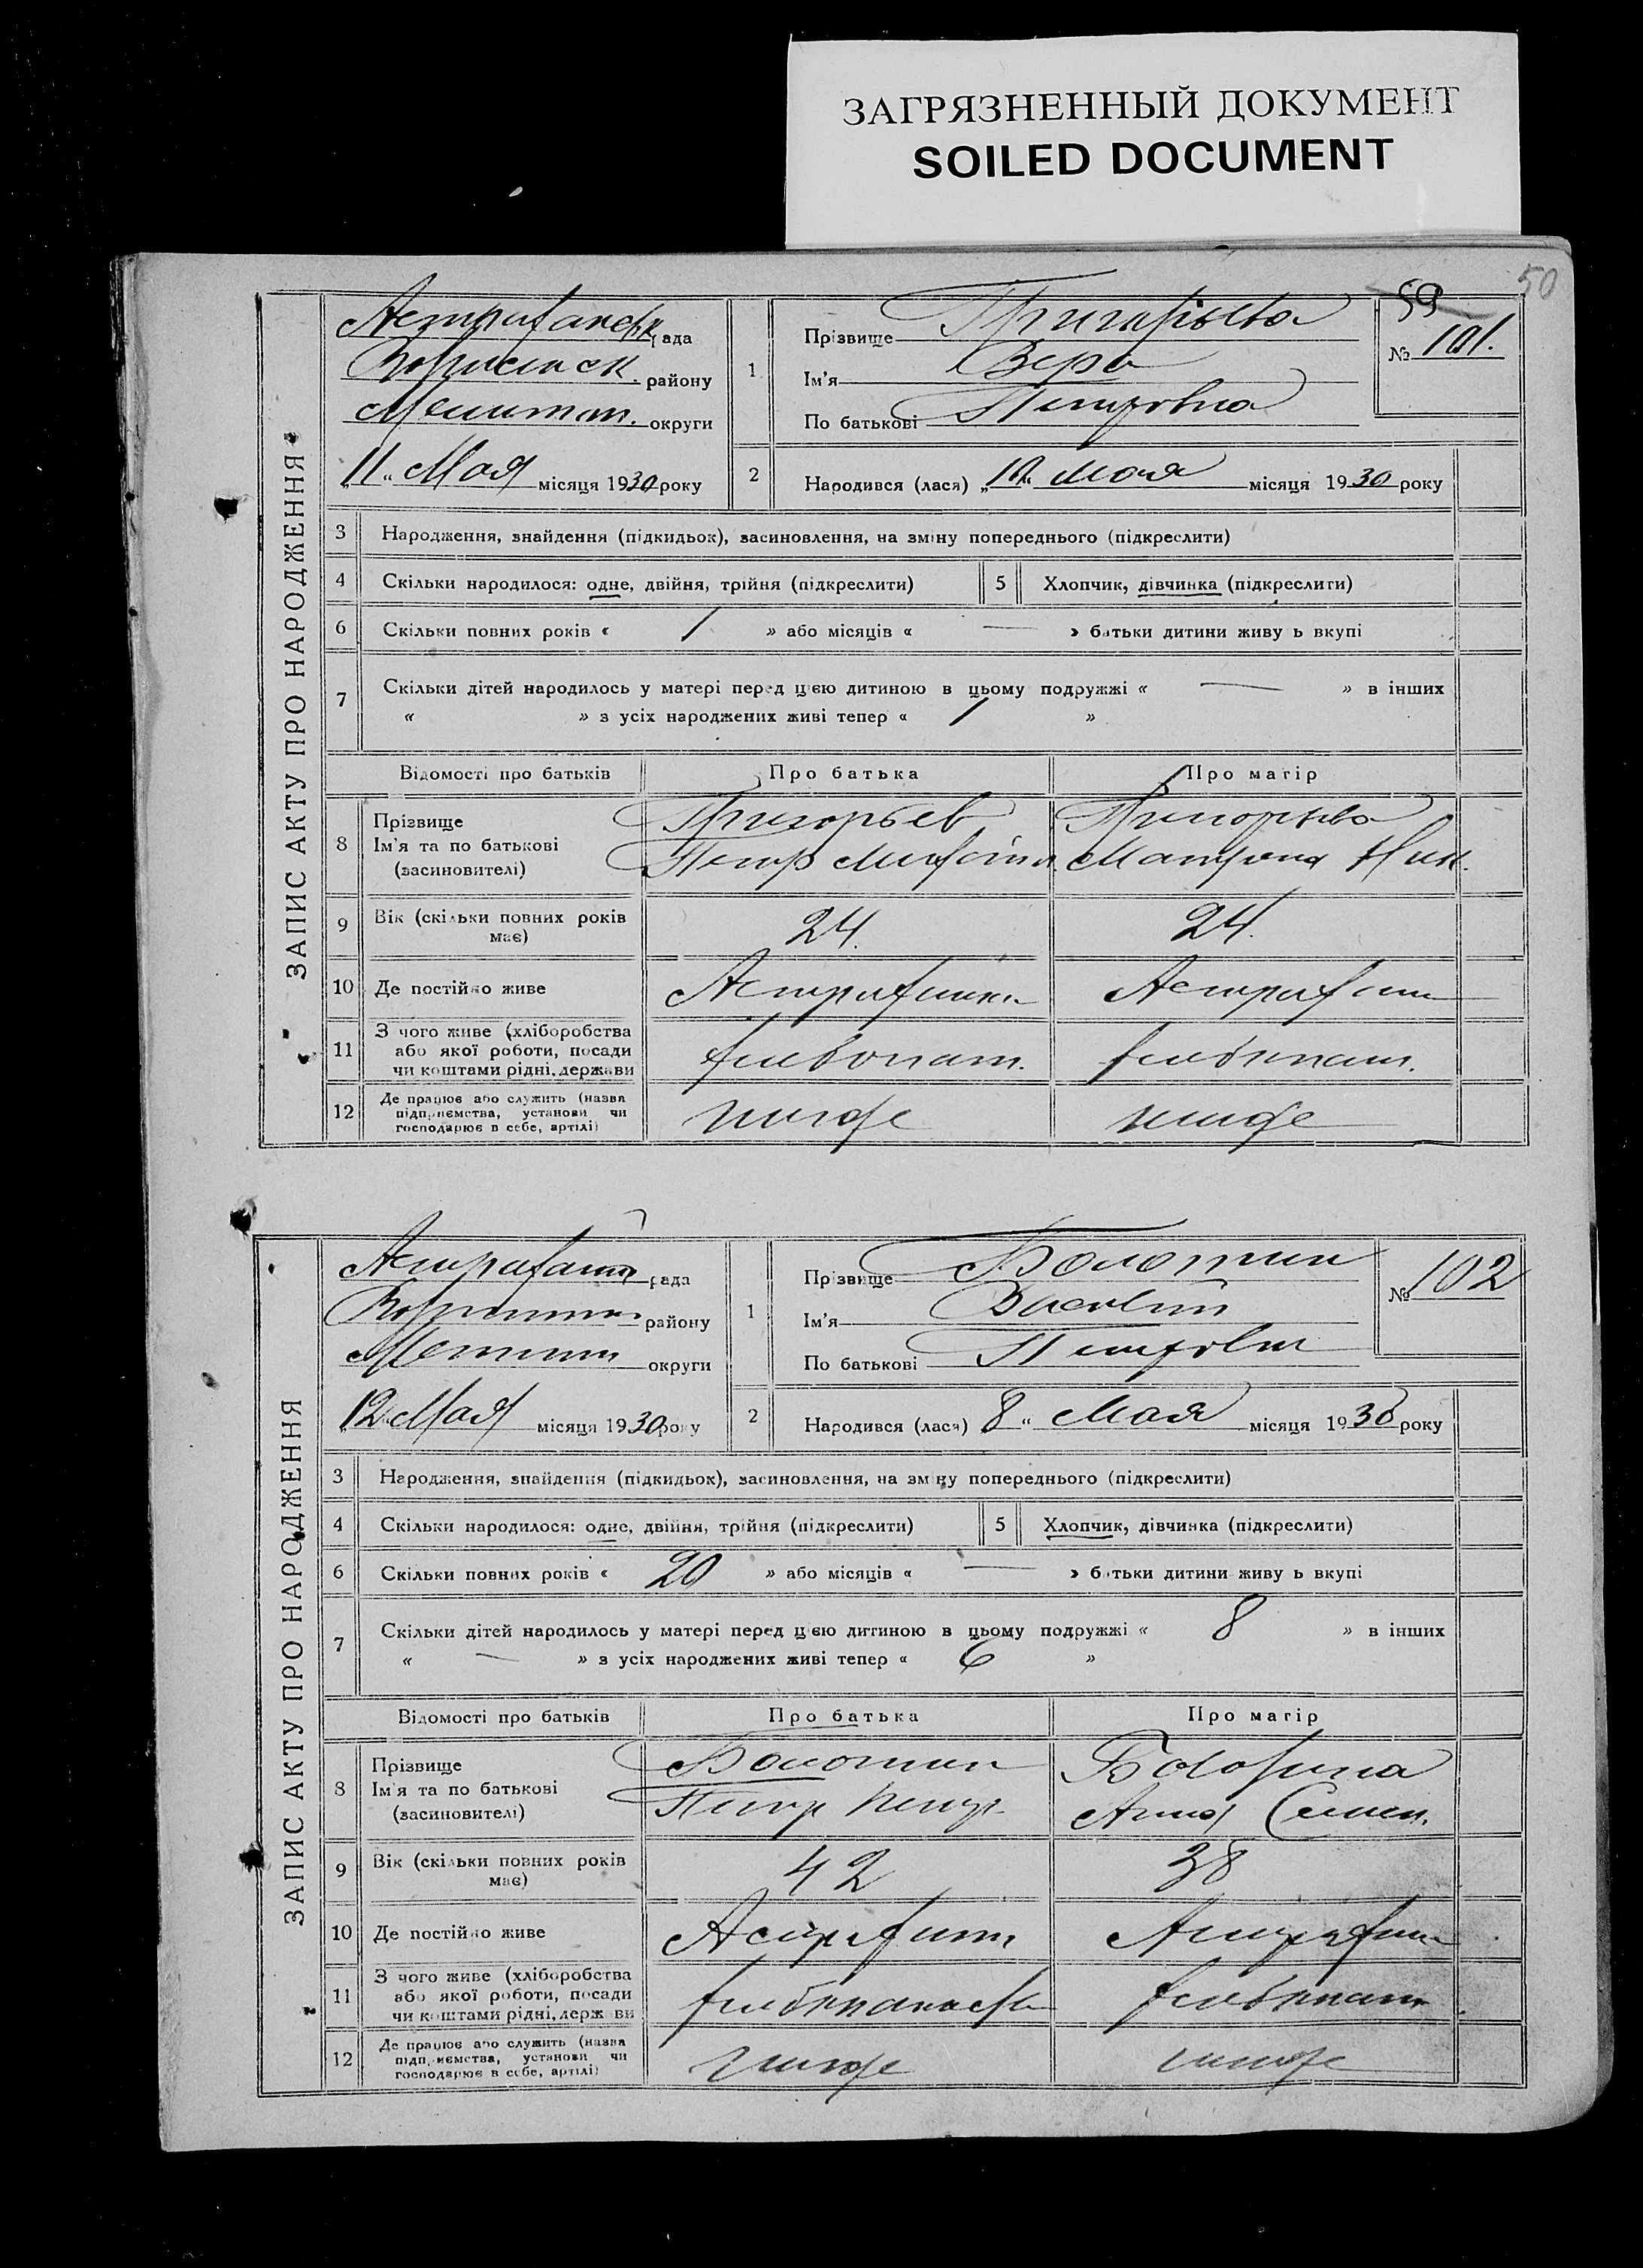 ЗАГРЯЗНЕННЫЙ ДОКУМЕНТ
SOILED DOCUMENT
50
59
ЗАПИС АКТУ ПРО НАРОДЖЕННЯ
Астраханск рада
району
Мелитоп. округи
„11“ Мая місяця 1930 року
1
Прізвище Григорьева
Ім'я Вера
По батькові Петровна
№ 101.
2
Народився (лася) „10“ мая місяця 1930 року
3 Народження, знайдення (підкидьок), засиновлення, на зміну попереднього (підкреслити)
4 Скільки народилося: одне, двійня, трійня (підкреслити) 5 Хлопчик, дівчинка (підкреслити)
6 Скільки повних років « 1 » або місяців « — » батьки дитини живуть вкупі
7 Скільки дітей народилось у матері перед цією дитиною в цьому подружжі « — » в інших
« » з усіх народжених живі тепер « 1 »
Відомості про батьків Про батька Про матір
8 Прізвище
Ім'я та по батькові
(засиновителі)
Григорьев
Петр
Григорьева
Матрона Ник.
9 Вік (скільки повних років
має)
24. 24.
10 Де постійно живе
Астраханка Астрахан
11 З чого живе (хліборобства
або якої роботи, посади
чи коштами рідні, держави
хлебопаш. хлебопаш.
12 Де працює або служить (назва
підприємства, установи чи
господарює в себе, артілі)
ЗАПИС АКТУ ПРО НАРОДЖЕННЯ
Астрахан рада
району
округи
„12“ Мая місяця 1930 року
1
Прізвище Болотин
Ім'я Василий
По батькові Петрович
№ 102
2
Народився (лася) „8“ Мая місяця 1930 року
3 Народження, знайдення (підкидьок), засиновлення, на зміну попереднього (підкреслити)
4 Скільки народилося: одне, двійня, трійня (підкреслити) 5 Хлопчик, дівчинка (підкреслити)
6 Скільки повних років « 20 » або місяців « — » батьки дитини живуть вкупі
7 Скільки дітей народилось у матері перед цією дитиною в цьому подружжі « 8 » в інших
« — » з усіх народжених живі тепер « 6 »
Відомості про батьків Про батька Про матір
8 Прізвище
Ім'я та по батькові
(засиновителі)
Болотин
Петр Петр.
Анна Семен.
9 Вік (скільки повних років
має)
42 38
10 Де постійно живе
Астрахан Астрахан
11 З чого живе (хліборобства
або якої роботи, посади
чи коштами рідні, держави
хлебопаш
12 Де працює або служить (назва
підприємства, установи чи
господарює в себе, артілі)